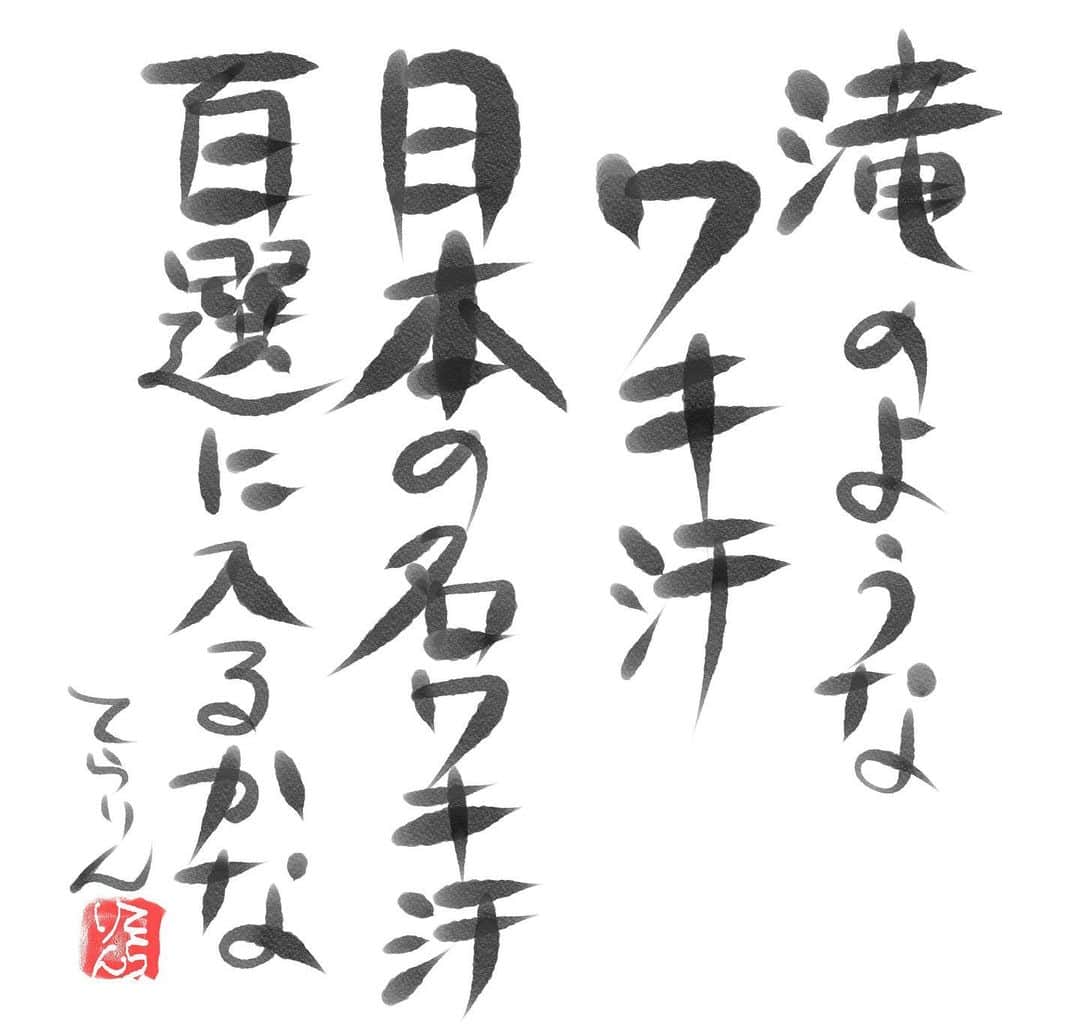 滝のような
ワキ汗
日本の名ワキ汗
百選に入るかな
てらりん
てらりん